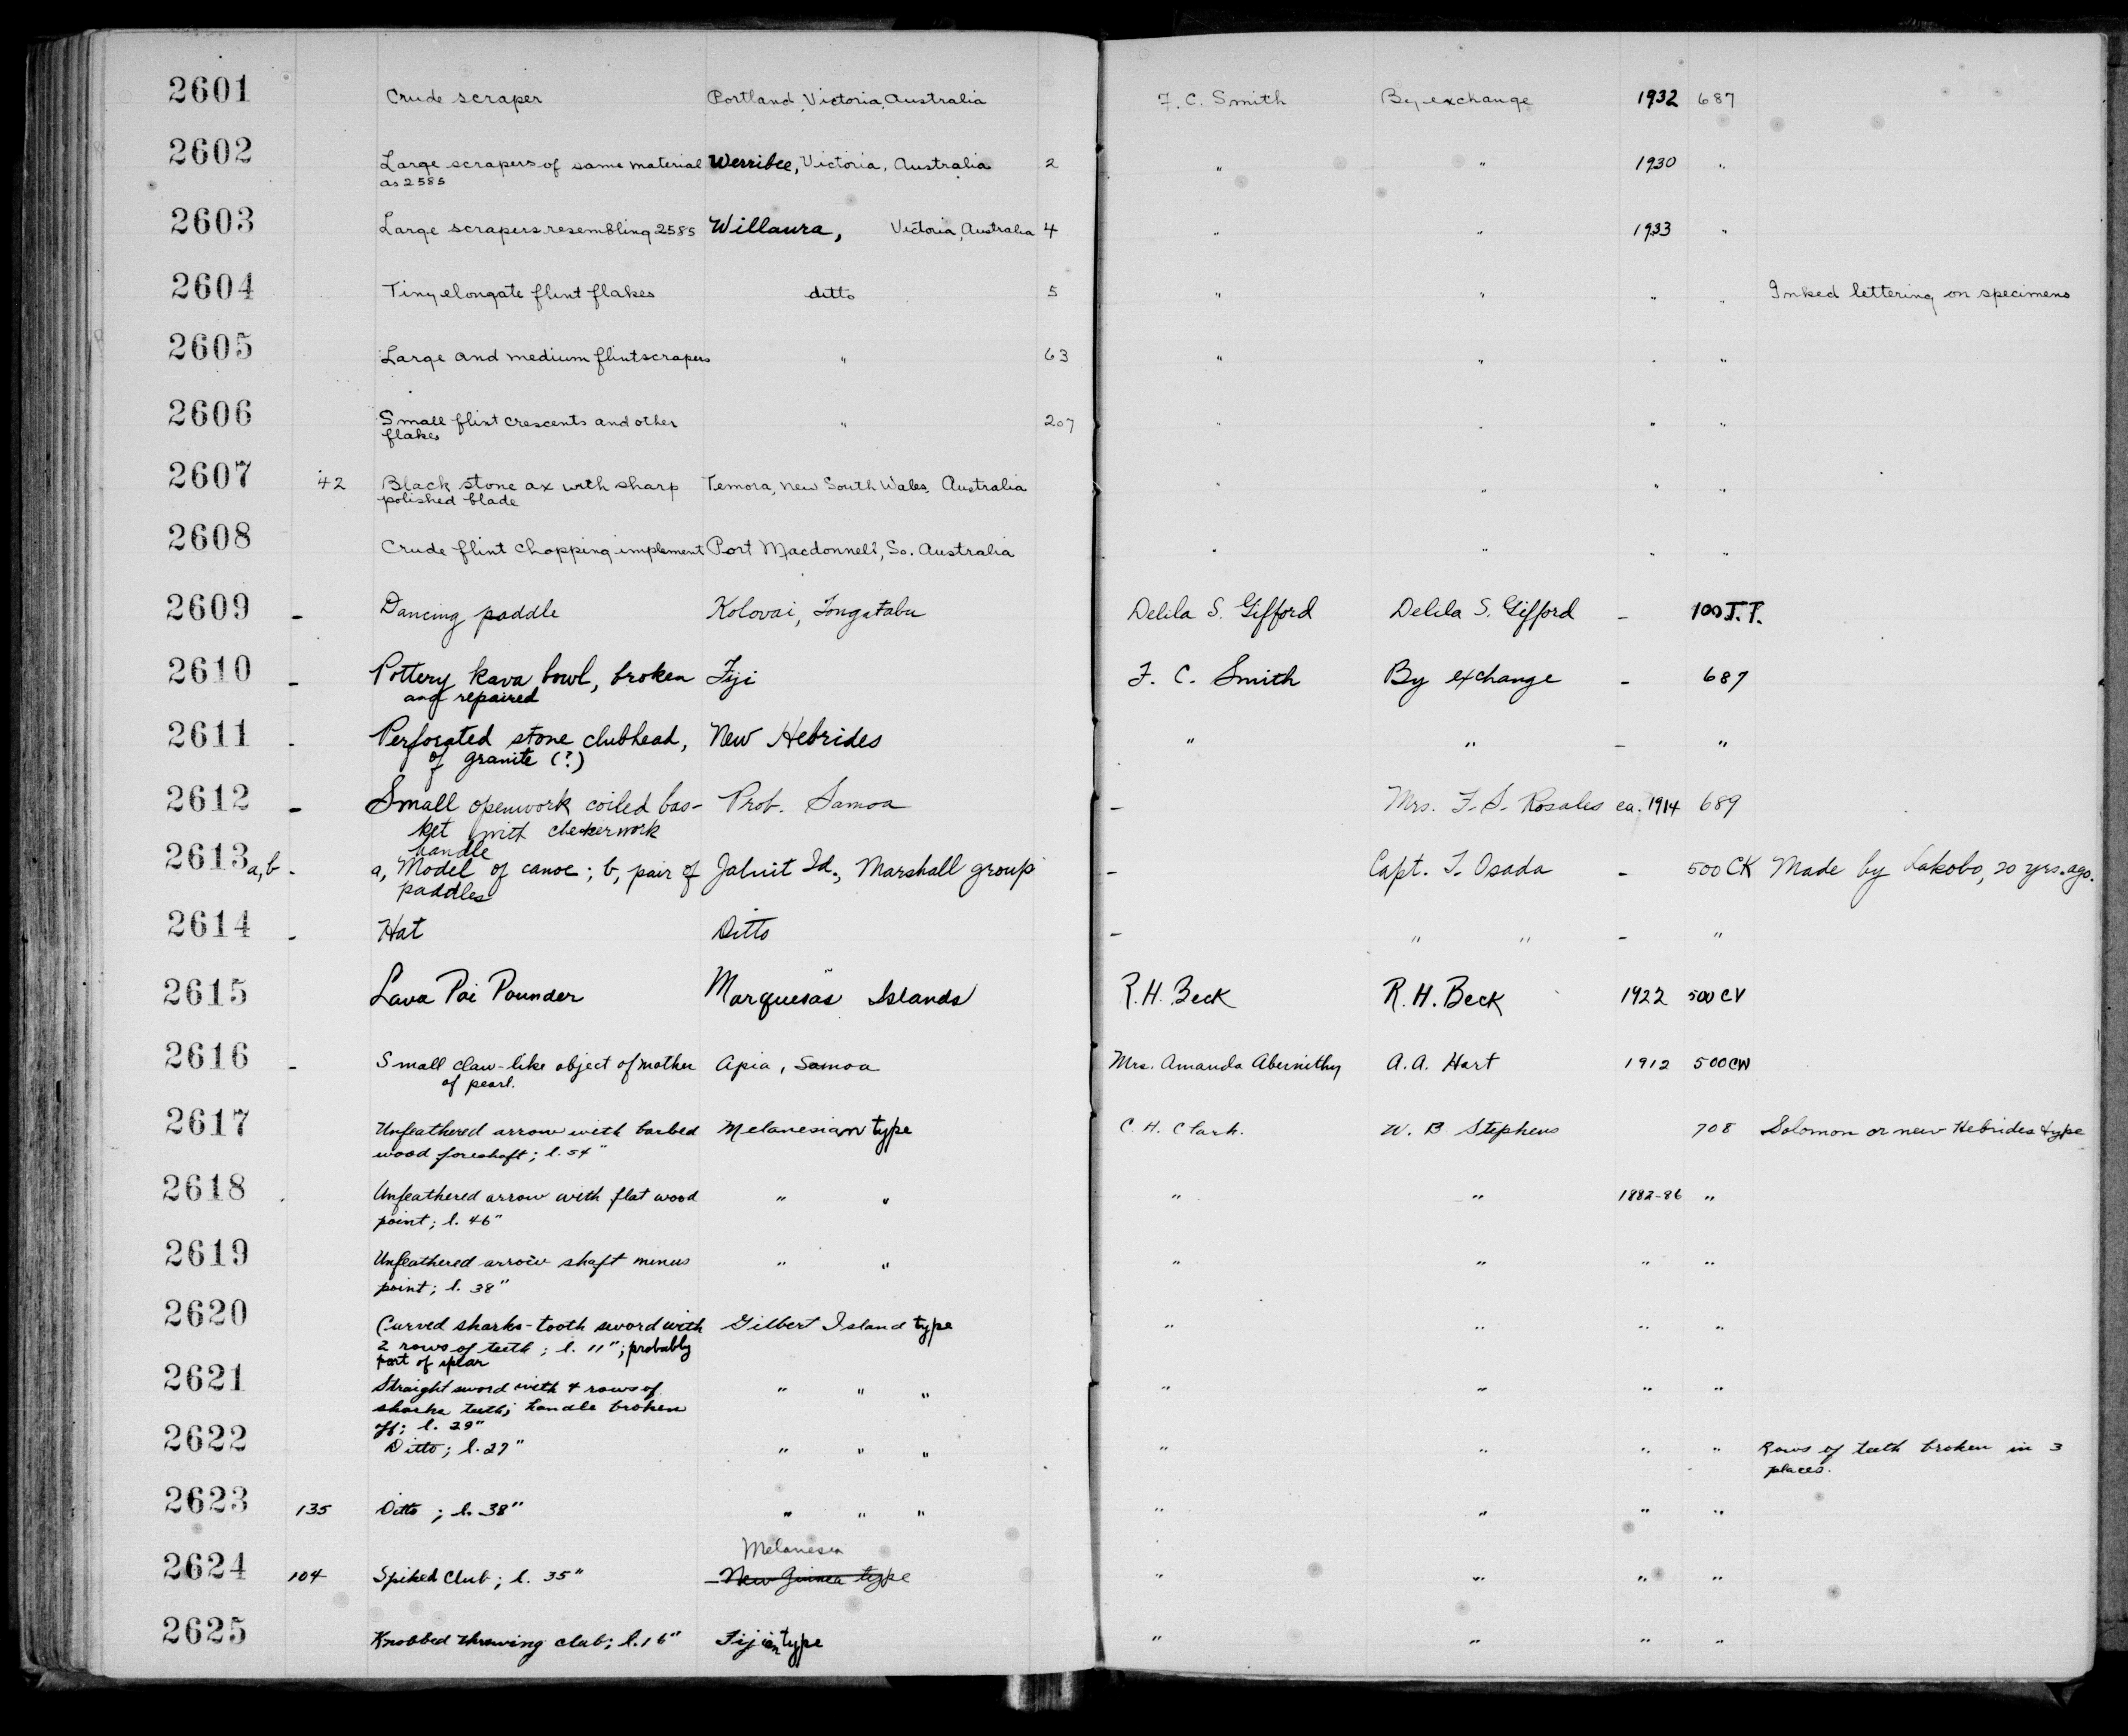 2601 Crude scraper Portland, Victoria, Australia F. C. Smith By exchange 1932 687
2602 Large scrapers of same material Werribee, Victoria, Australia 2 " " 1930 "
as 2585
2603 Large scrapers resembling 2585 Willaura, Victoria, Australia 4 " " 1933 "
2604 Tiny elongate flint flakes ditto 5 " " " " Inked lettering on specimens
2605 Large and medium flint scrapers " 63 " " " "
2606 Small flint crescents and other " 207 " " " "
flakes
2607 42 Black stone ax with sharp Temora, New South Wales, Australia " " " "
polished blade
2608 Crude flint chopping implement Port Macdonnell, So. Australia " " " "
2609 - Dancing paddle Kolovai, Tongatabu Delila S. Gifford Delila S. Gifford - 100 J.T.
2610 - Pottery kava bowl, broken Fiji F. C. Smith By exchange - 687
and repaired
2611 - Perforated stone clubhead, New Hebrides " " - "
of granite (?)
2612 - Small openwork coiled bas- Prob. Samoa - Mrs. F. S. Rosales ca. 1914 689
ket with checkerwork
handle
2613 a,b - a, Model of canoe; b, pair of Jaluit Id., Marshall group - Capt. T. Osada - 500 CK Made by Lakobo, 20 yrs. ago.
paddles
2614 - Hat Ditto - " " - "
2615 Lava Poi Pounder Marquesas Islands R. H. Beck R. H. Beck 1922 500 CV
2616 - Small claw-like object of mother Apia, Samoa Mrs. Amanda Abernithy A. A. Hart 1912 500 CW
of pearl.
2617 Unfeathered arrow with barbed Melanesian type C. H. Clark. W. B Stephens 708 Solomon or New Hebrides type
wood foreshaft; l. 54"
2618 - Unfeathered arrow with flat wood " " " " 1882-86 "
point; l. 46"
2619 Unfeathered arrow shaft minus " " " " " "
point; l. 38"
2620 Curved sharks-tooth sword with Gilbert Island type " " " "
2 rows of teeth; l. 11"; probably
part of spear
2621 Straight sword with 4 rows of " " " " " " "
sharks teeth; handle broken
off; l. 29"
2622 Ditto; l. 27" " " " " " " " Rows of teeth broken in 3
places.
2623 135 Ditto; l. 38" " " " " " " "
Melanesia
2624 104 Spiked Club; l. 35" New Guinea type " " " "
2625 Knobbed throwing club; l. 16" Fijian type " " " "